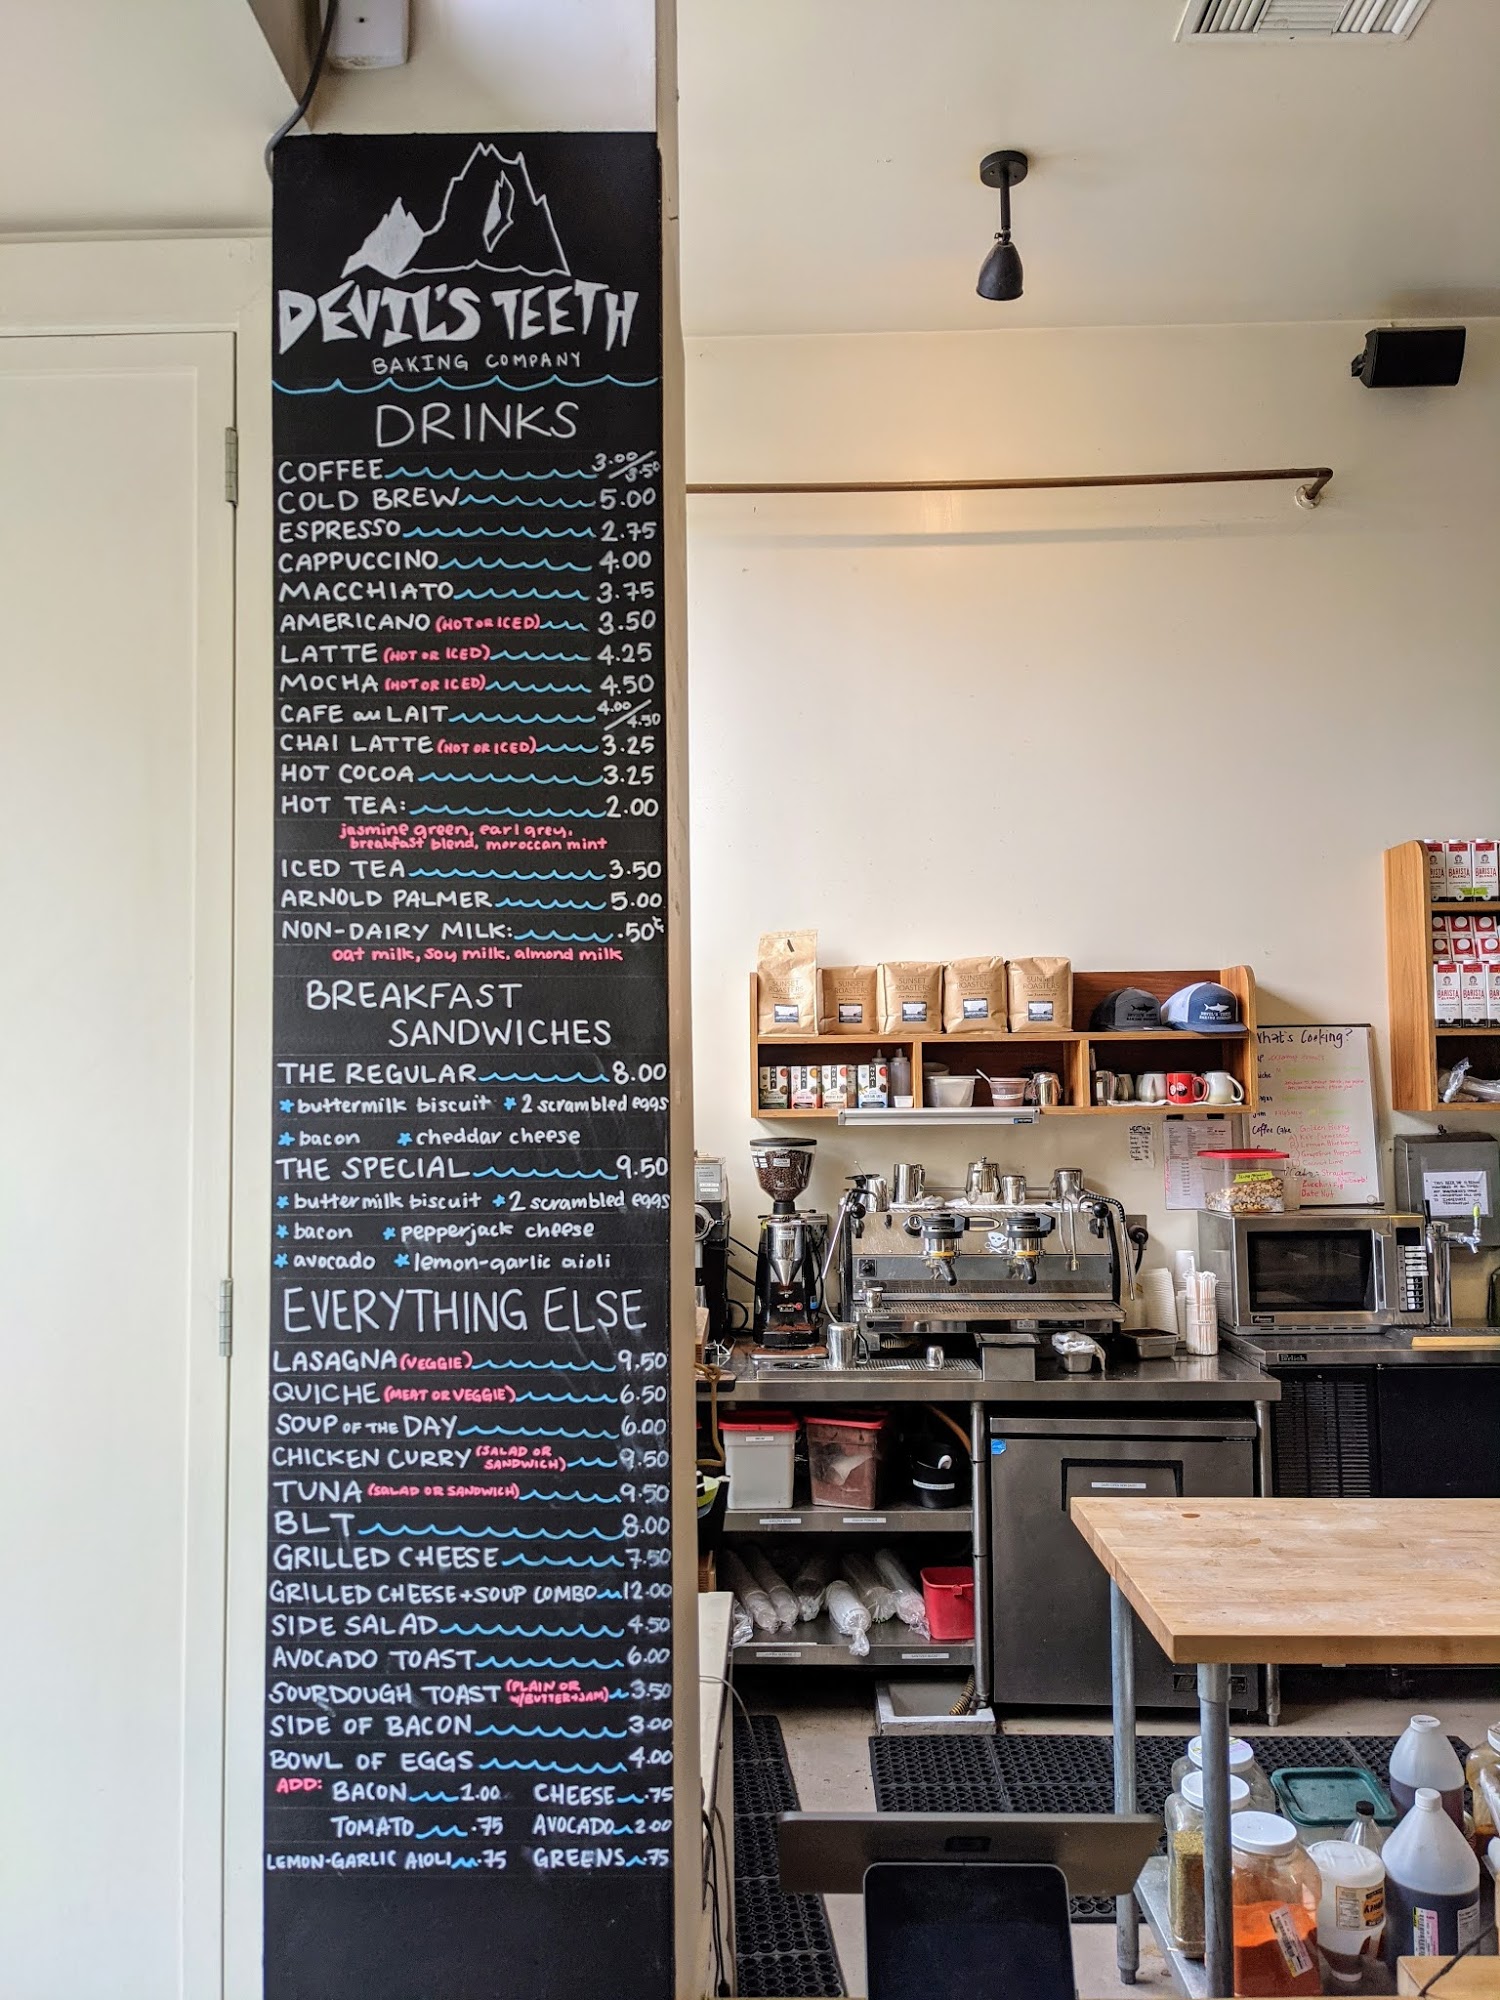 DEVIL'S TEETH
BAKING COMPANY
DRINKS
COFFEE 3.00/3.50
COLD BREW 5.00
ESPRESSO 2.75
CAPPUCCINO 4.00
MACCHIATO 3.75
AMERICANO (HOT OR ICED) 3.50
LATTE (HOT OR ICED) 4.25
MOCHA (HOT OR ICED) 4.50
CAFE au LAIT 4.00/4.50
CHAI LATTE (HOT OR ICED) 3.25
HOT COCOA 3.25
HOT TEA: 2.00
jasmine green, earl grey,
breakfast blend, moroccan mint
ICED TEA 3.50
ARNOLD PALMER 5.00
NON-DAIRY MILK: .50¢
oat milk, soy milk, almond milk
BREAKFAST
SANDWICHES
THE REGULAR 8.00
* buttermilk biscuit * 2 scrambled eggs
* bacon * cheddar cheese
THE SPECIAL 9.50
* buttermilk biscuit * 2 scrambled eggs
* bacon * pepperjack cheese
* avocado * lemon-garlic aioli
EVERYTHING ELSE
LASAGNA (VEGGIE) 9.50
QUICHE (MEAT OR VEGGIE) 6.50
SOUP OF THE DAY 6.00
CHICKEN CURRY (SALAD OR SANDWICH) 9.50
TUNA (SALAD OR SANDWICH) 9.50
BLT 8.00
GRILLED CHEESE 7.50
GRILLED CHEESE+SOUP COMBO 12.00
SIDE SALAD 4.50
AVOCADO TOAST 6.00
SOURDOUGH TOAST (PLAIN OR W/BUTTER+JAM) 3.50
SIDE OF BACON 3.00
BOWL OF EGGS 4.00
ADD: BACON 1.00 CHEESE .75
TOMATO .75 AVOCADO 2.00
LEMON-GARLIC AIOLI .75 GREENS .75
SUNSET ROASTERS
SUNSET ROASTERS
SUNSET ROASTERS
SUNSET ROASTERS
NUMI
BARISTA
BARISTA
BARISTA
What's Cooking?
Coffee Cake
Golden Berry